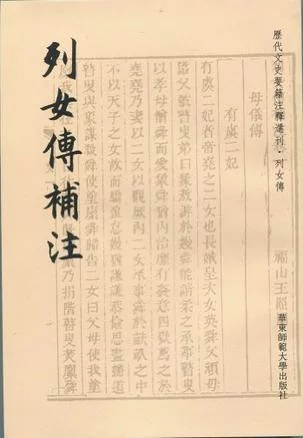 歷代文史要籍注釋選刊·列女傳
列女傳補注
母儀傳
有虞二妃
有虞二妃者帝堯之二女也長娥皇次女英舜父頑母
嚚父號瞽叟弟曰象敖游於嫚舜能諧柔之承事瞽叟
以孝母憎舜而愛象舜猶內治靡有姦意四嶽薦之於
堯堯乃妻以二女以觀厥內二女承事舜於畎畝之中
不以天子之女故而驕盈怠嫚猶謙謙恭儉思盡婦道
瞽叟與象謀殺舜使塗廩舜歸告二女曰父母使我塗
乃捐階瞽叟焚廩舜
華東師範大學出版社